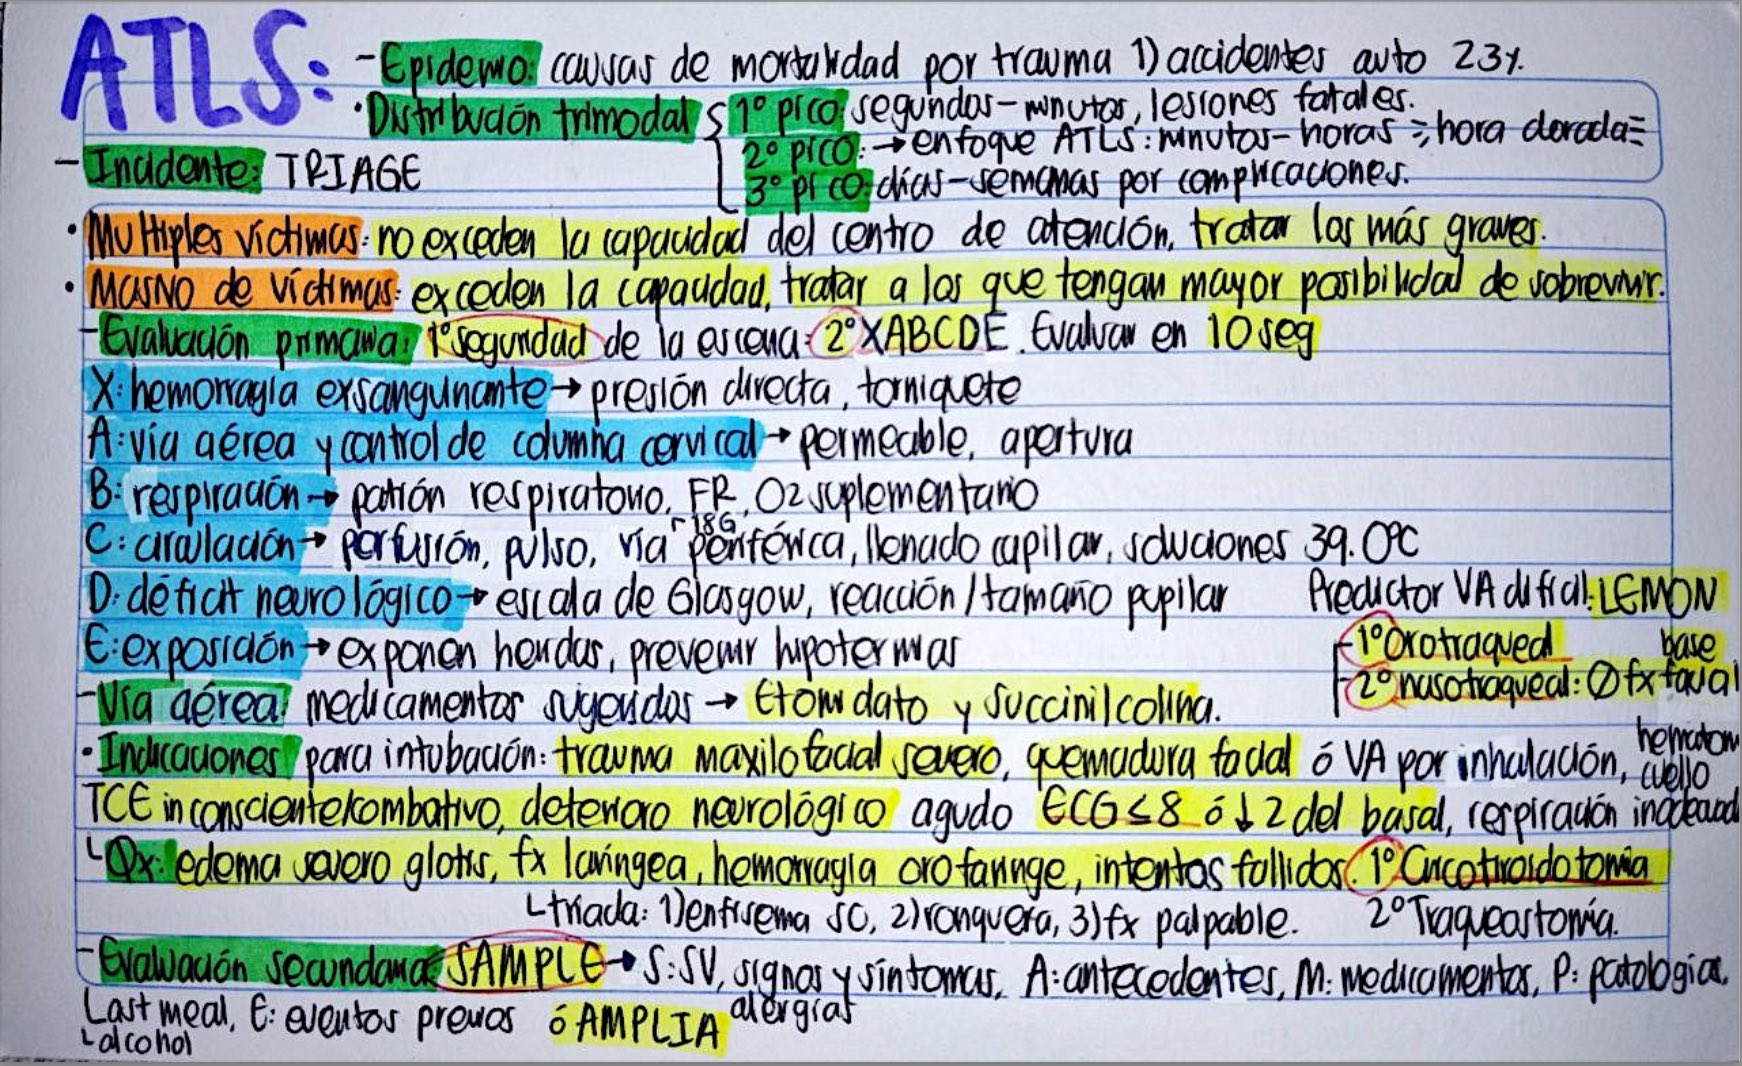 ATLS:
- Epidemio: causas de mortalidad por trauma 1) accidentes auto 23%.
• Distribución trimodal
1° pico: segundos - minutos, lesiones fatales.
2° pico: → enfoque ATLS: minutos - horas => hora dorada
3° pico: días - semanas por complicaciones.
- Incidente: TRIAGE
• Multiples víctimas: no exceden la capacidad del centro de atención, tratar los más graves.
• Masivo de víctimas: exceden la capacidad, tratar a los que tengan mayor posibilidad de sobrevivir.
- Evaluación primaria: 1° seguridad de la escena: 2° XABCDE. Evaluar en 10 seg
X: hemorragia exsanguinante → presión directa, torniquete
A: vía aérea y control de columna cervical → permeable, apertura
B: respiración → patrón respiratorio, FR, O2 suplementario
18G
C: circulación → perfusión, pulso, vía periférica, llenado capilar, soluciones 39.0°C
D: déficit neurológico → escala de Glasgow, reacción/tamaño pupilar
E: exposición → exponen heridas, prevenir hipotermias
Predictor VA difícil: LEMON
1° Orotraqueal
2° nasotraqueal: Ø fx facial
base
- Vía aérea: medicamentos sugeridos → Etomidato y Succinilcolina.
• Indicaciones para intubación: trauma maxilofacial severo, quemadura facial ó VA por inhalación, hematom
cuello
TCE inconsciente/combativo, deterioro neurológico agudo ECG ≤ 8 ó ↓ 2 del basal, respiración inadecuad
└ Qx: edema severo glotis, fx laríngea, hemorragia orofaringe, intentos fallidos. 1° Cricotiroidotomía
└ triada: 1) enfisema SC, 2) ronquera, 3) fx palpable. 2° Traqueostomía.
- Evaluación secundaria: SAMPLE → S: SV, signos y síntomas, A: antecedentes, M: medicamentos, P: patologías,
alergias
Last meal, E: eventos previos ó AMPLIA
└ alcohol